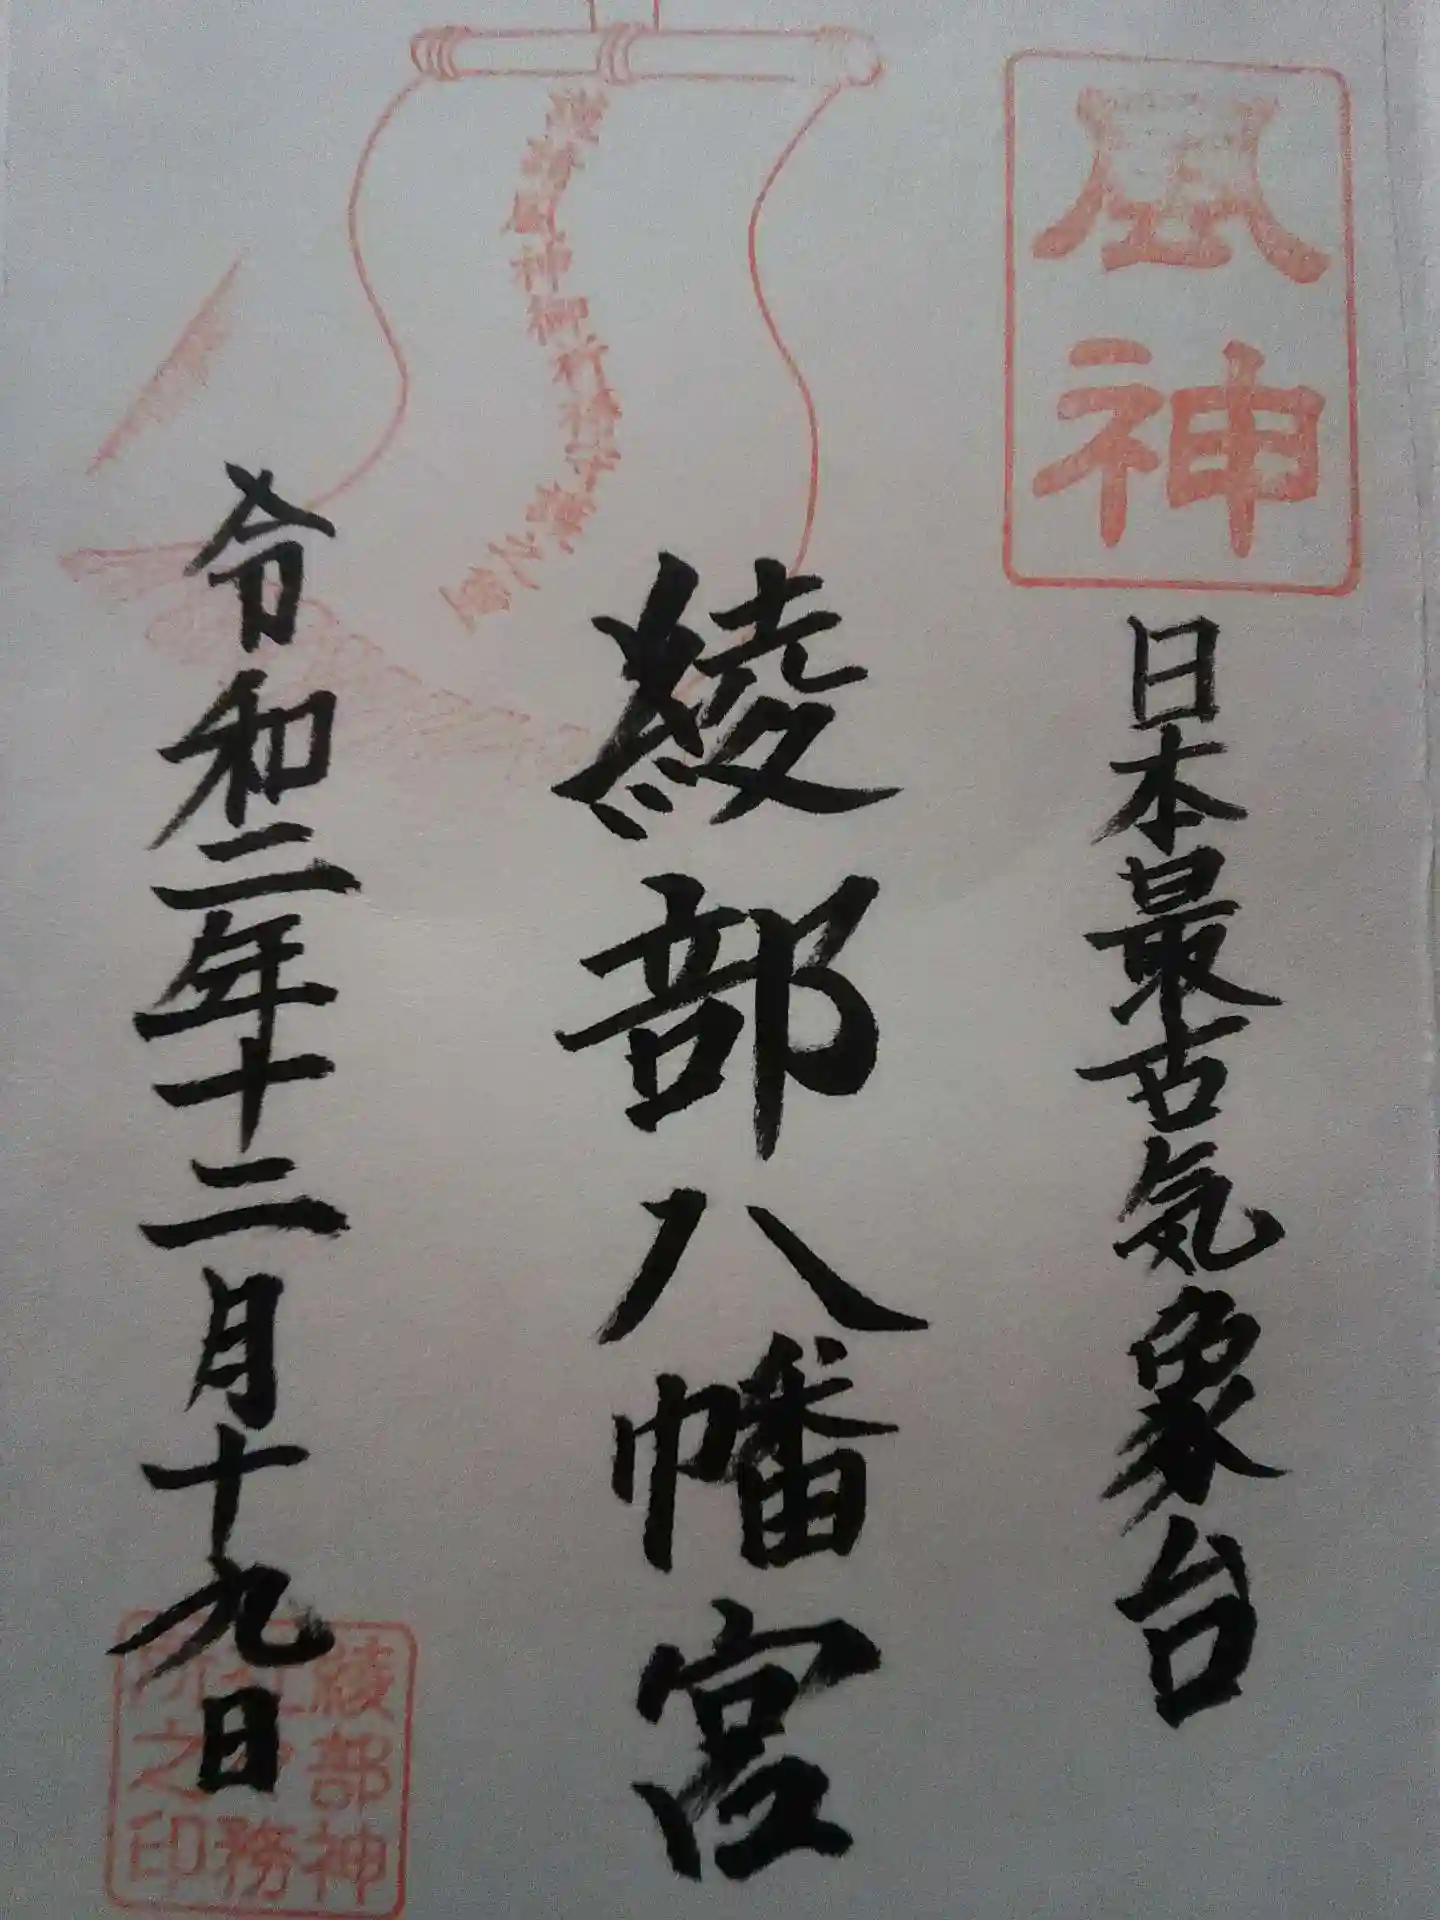 風神
日本最古気象台
綾部八幡宮
令和二年十二月十九日
綾部神
社々務
所之印